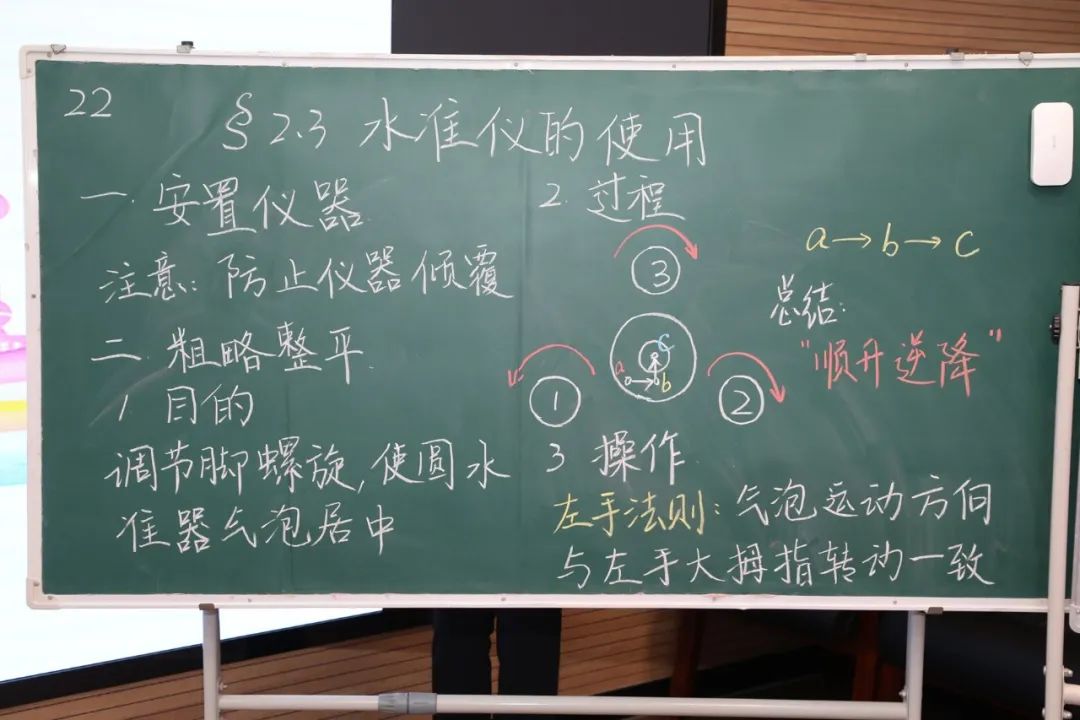 22
§2.3 水准仪的使用
一.安置仪器
注意:防止仪器倾覆
二.粗略整平
1.目的
调节脚螺旋,使圆水
准器气泡居中
2.过程
③
a b c
① ②
a→b→c
总结:
"顺升逆降"
3 操作
左手法则:气泡运动方向
与左手大拇指转动一致